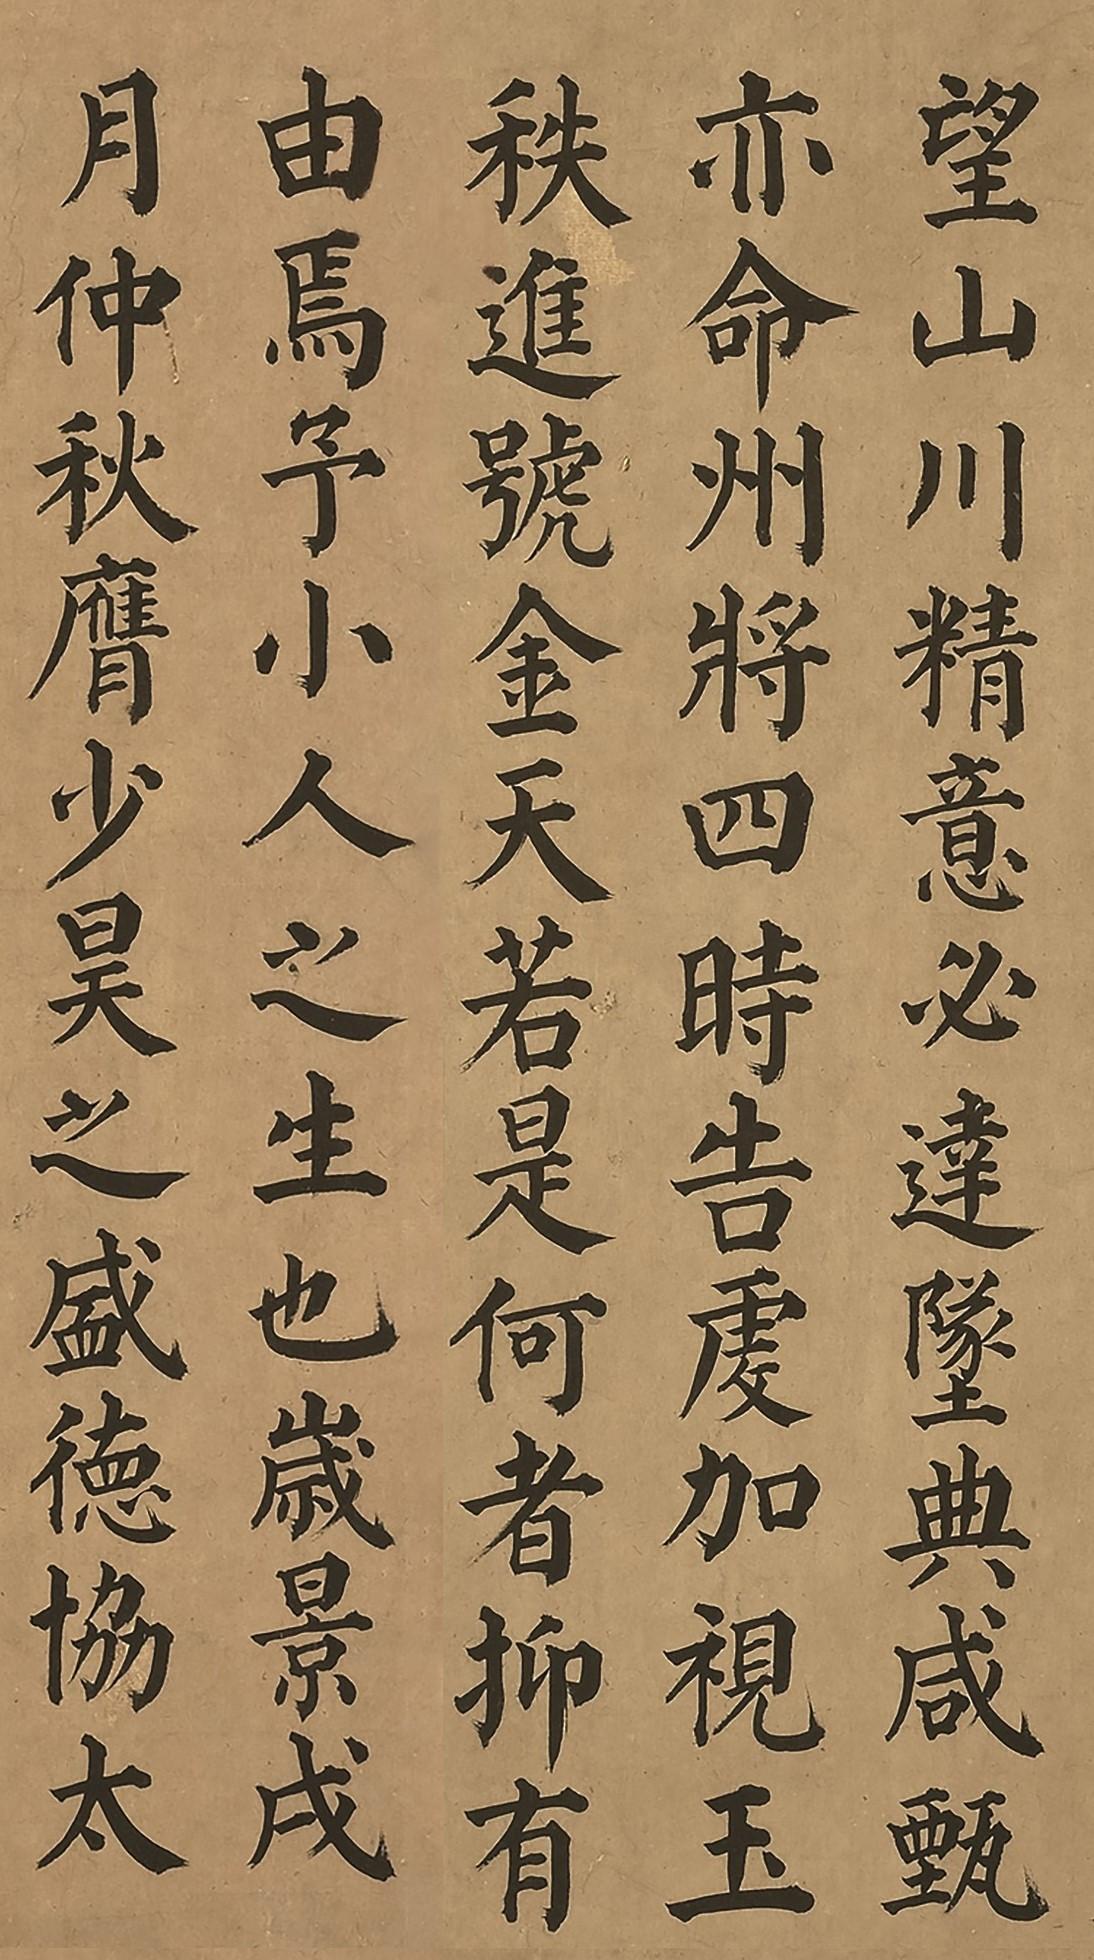 望山川精意必達墜典咸甄
亦命州將四時告虔加視玉
秩進號金天若是何者抑有
由焉予小人之生也歲景戌
月仲秋膺少昊之盛德協太